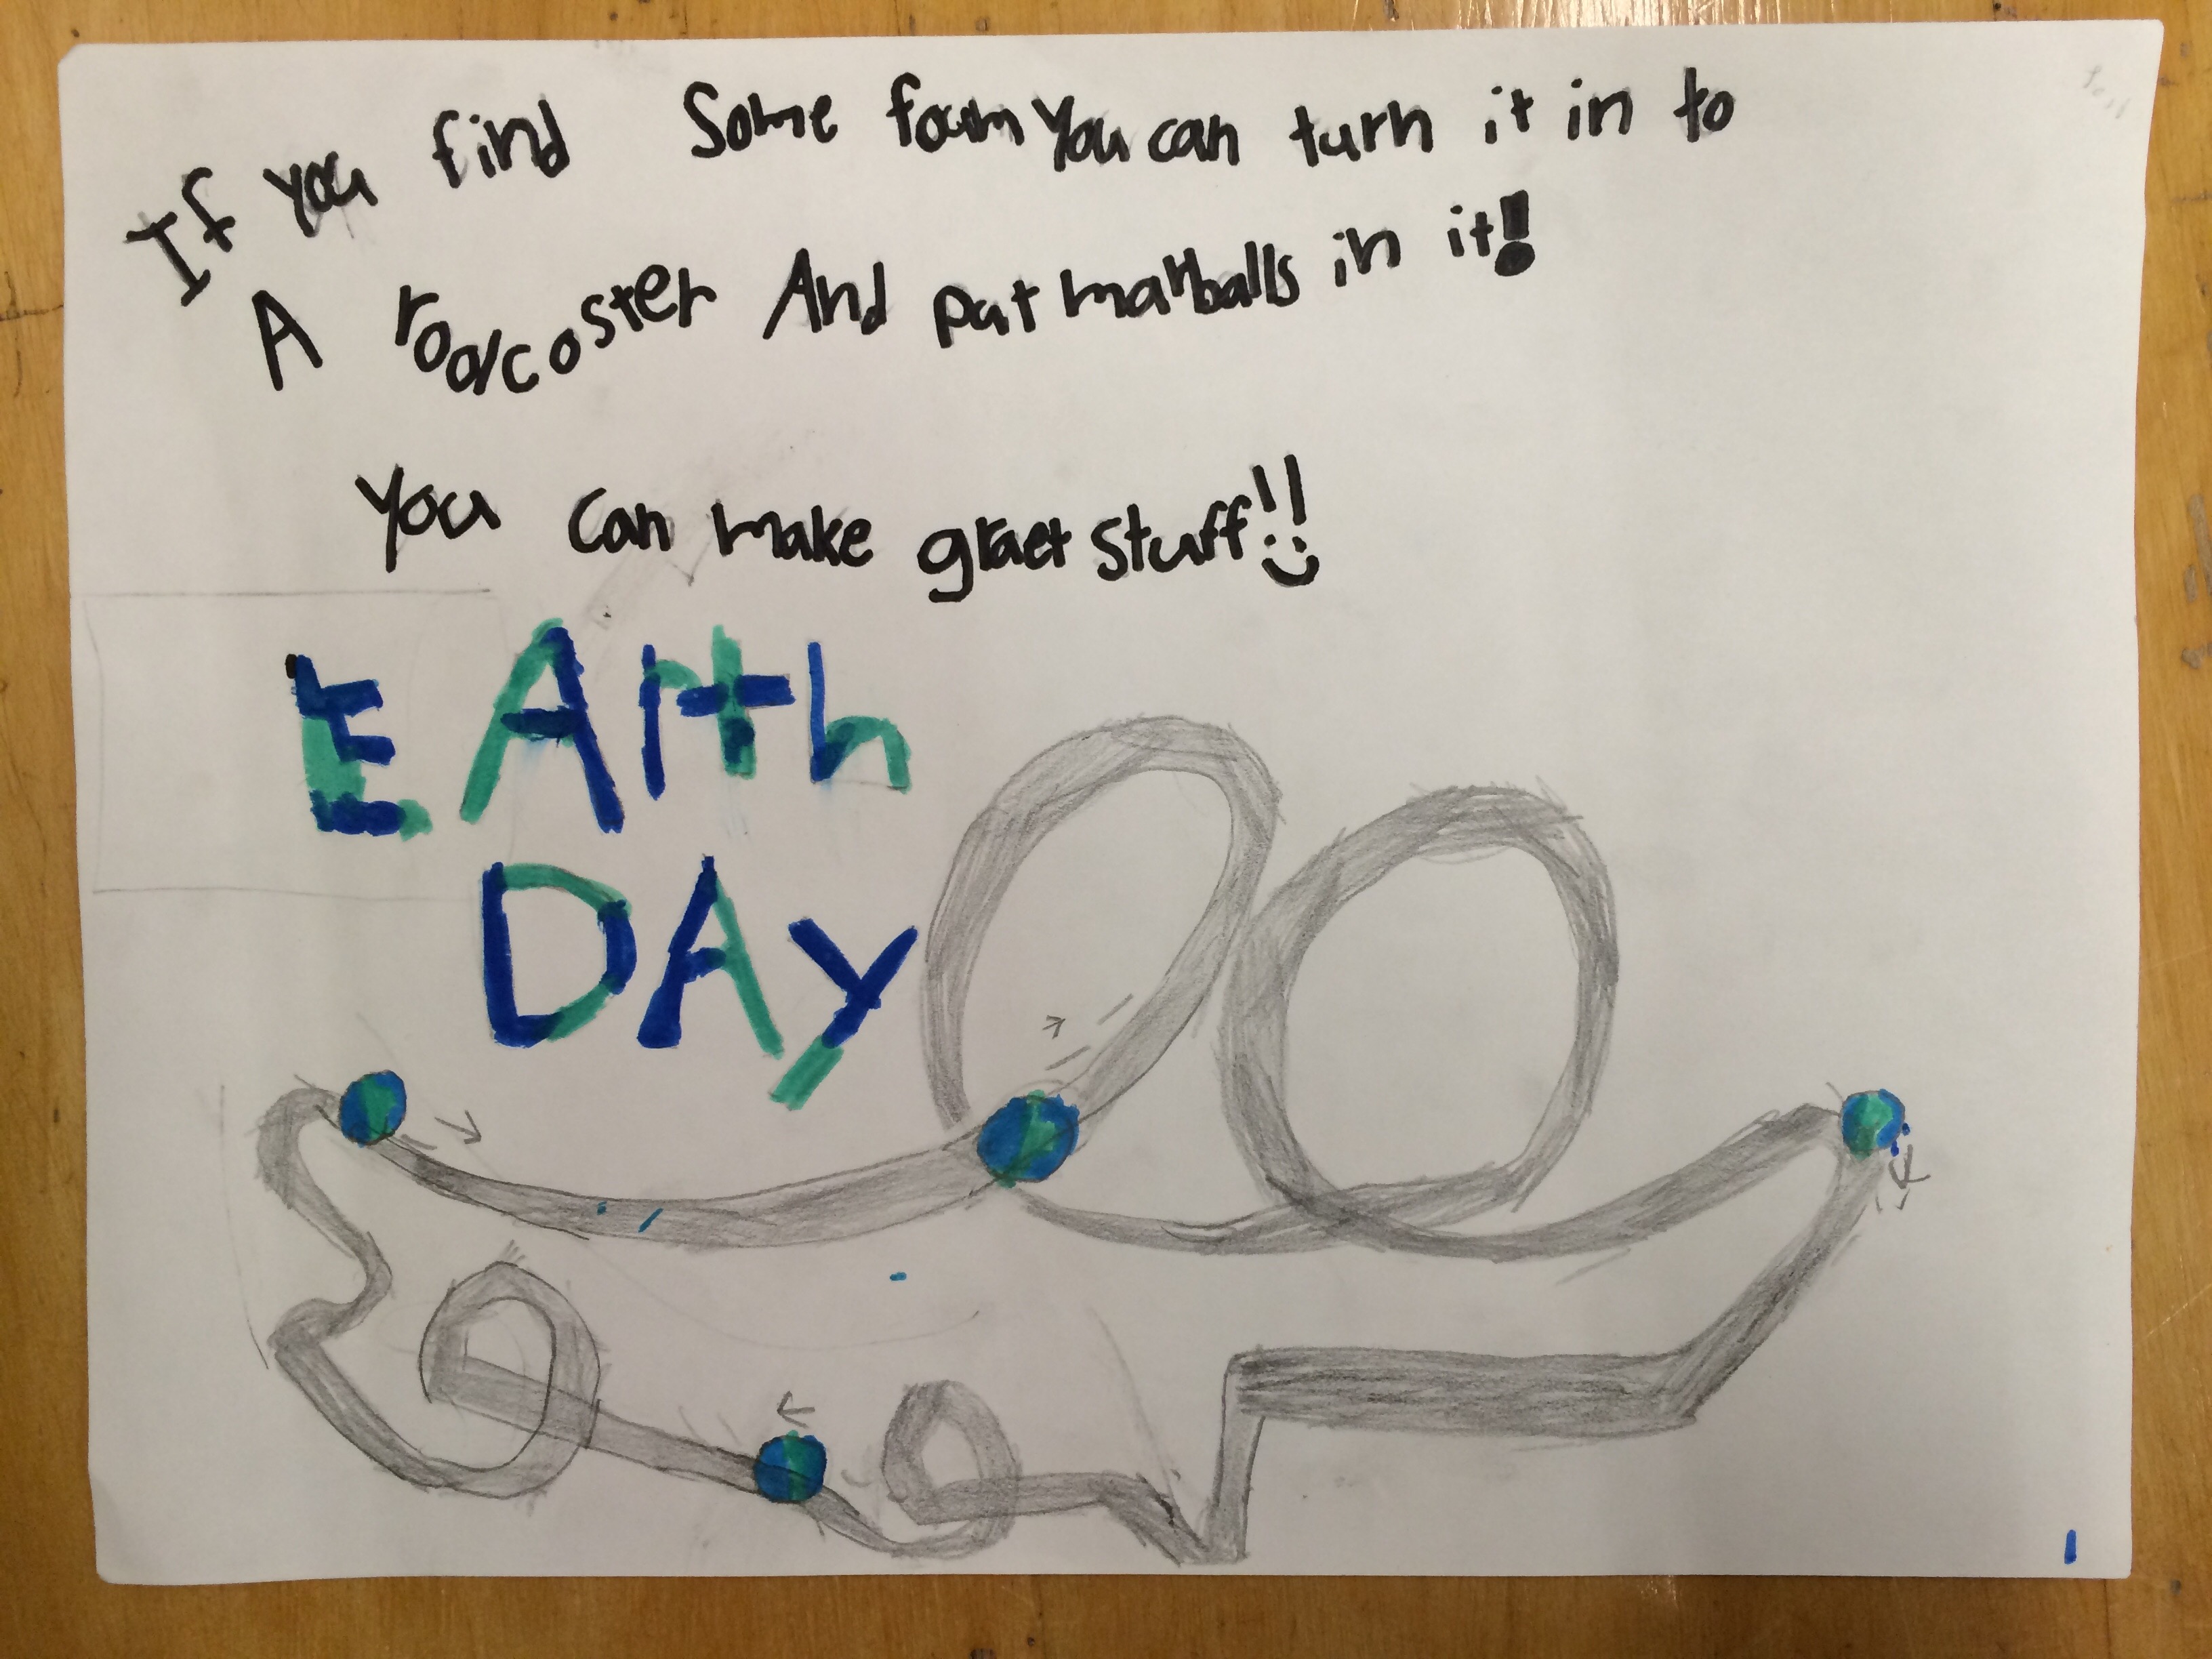 If you find Some foam You can turn it in to
A roolcoster And put marballs in it!
You can make graet stuff!!
EArth
DAy